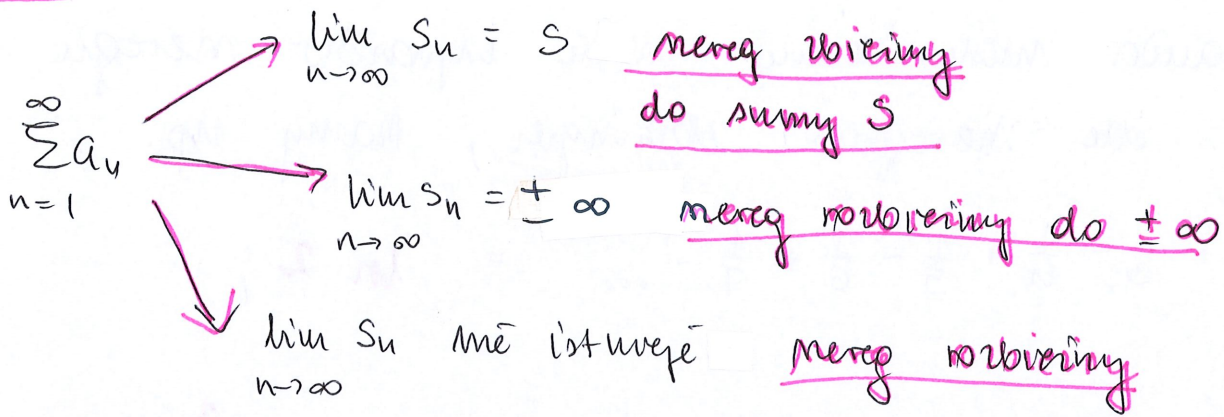 lim Sn = S szereg zbieżny
n→∞ do sumy S
∞
∑ an
n=1
lim Sn = ± ∞ szereg rozbieżny do ± ∞
n→∞
lim Sn nie istnieje szereg rozbieżny
n→∞